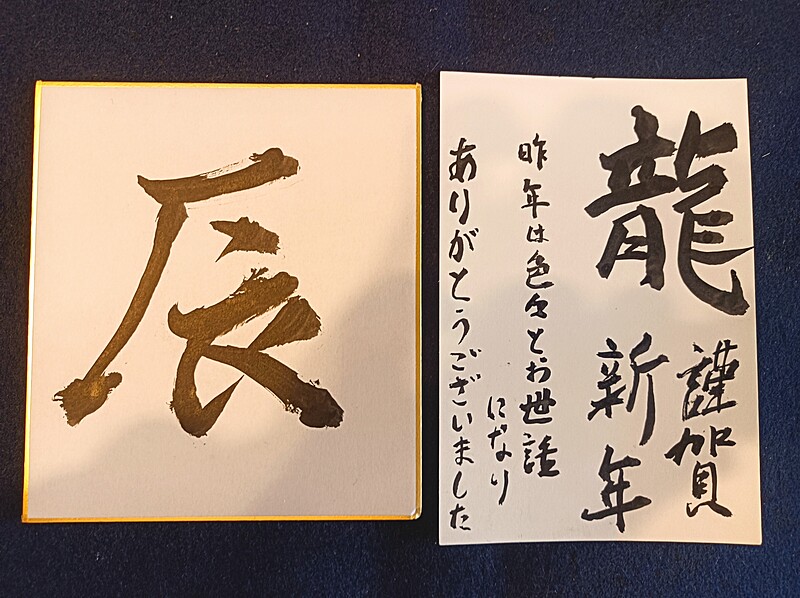 辰
龍
謹賀
新年
昨年は色々とお世話
になり
ありがとうございました